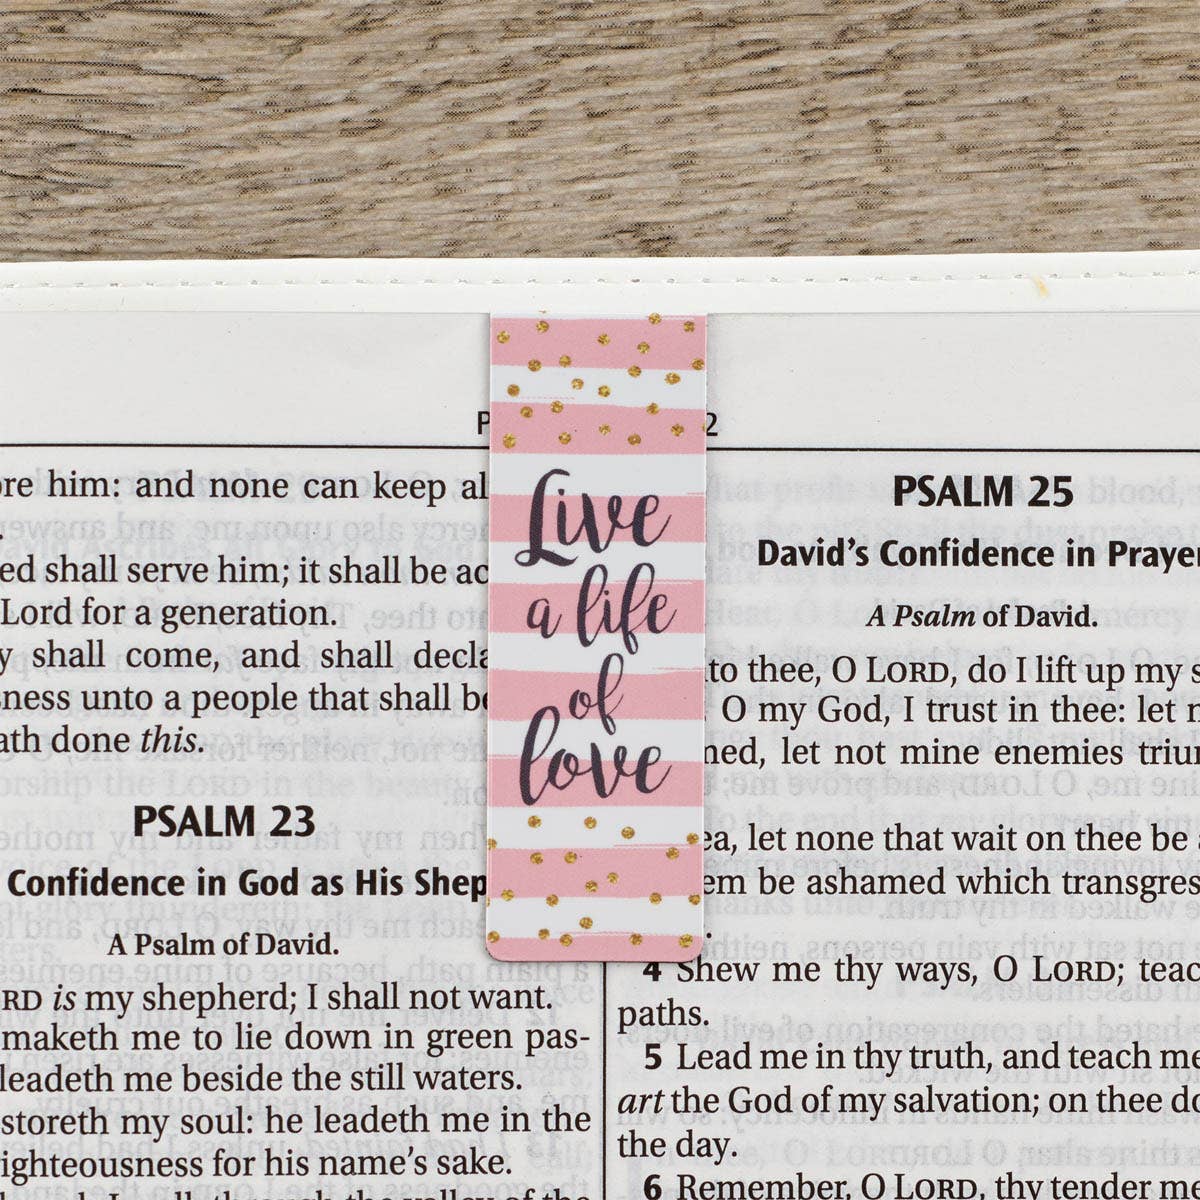 Live
a life
of
love
ore him: and none can keep al
ed shall serve him; it shall be ac
Lord for a generation.
y shall come, and shall decla
sness unto a people that shall be
ath done this.
PSALM 23
Confidence in God as His Shep
A Psalm of David.
ORD is my shepherd; I shall not want.
maketh me to lie down in green pas-
leadeth me beside the still waters.
storeth my soul: he leadeth me in the
ighteousness for his name's sake.
PSALM 25
David's Confidence in Prayer
A Psalm of David.
to thee, O LORD, do I lift up my s
O my God, I trust in thee: let n
ned, let not mine enemies trium
ea, let none that wait on thee be a
em be ashamed which transgress
4 Shew me thy ways, O LORD; teach
paths.
5 Lead me in thy truth, and teach me
art the God of my salvation; on thee do
the day.
6 Remember, O LORD, thy tender me